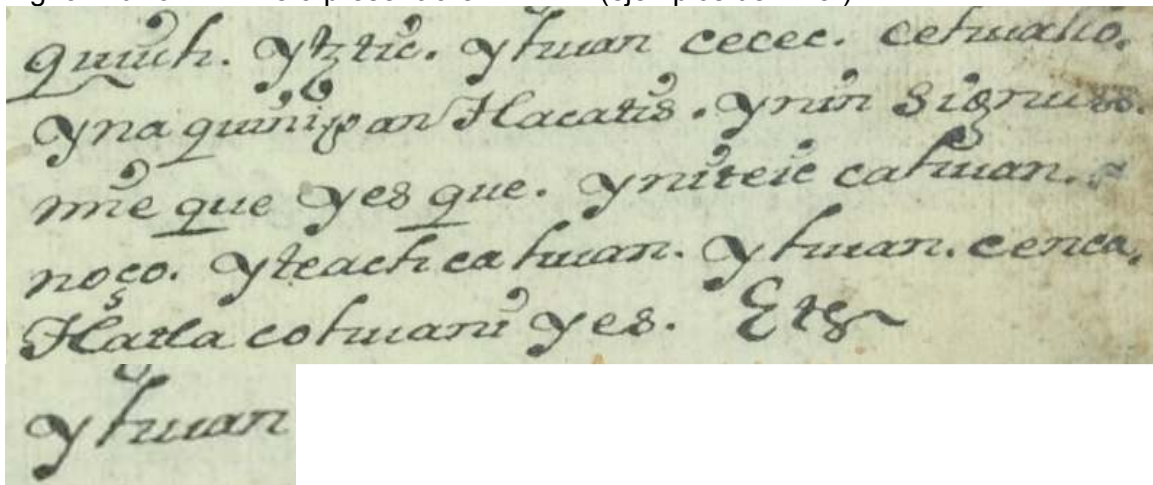 quiuh. ytztic. yhuan cecec. cehualio.
yna quinipan tlacatis. ynin signuss.
mie que yes que. yniteic cahuan.
noço. yteachcahuan. yhuan. cenca.
tlatlacohuani yes. Etz
yhuan